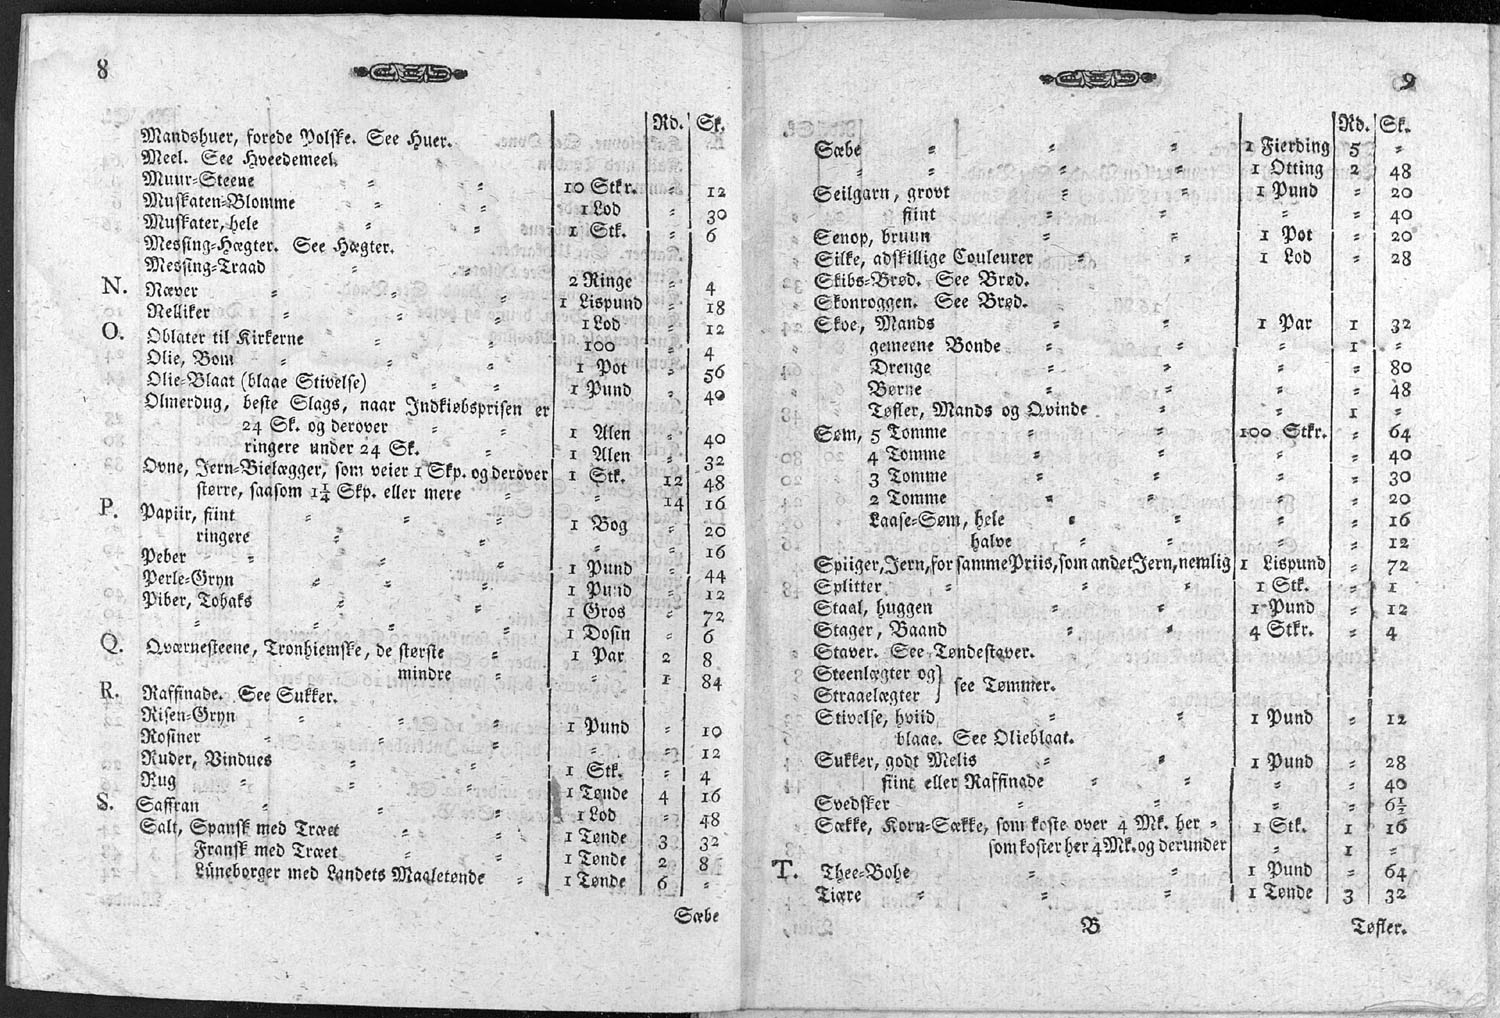 8
Rd. Sk.
Mandshuer, forede Polske. See Huer.
Meel. See Hveedemeel.
Muur-Steene 〃 〃 10 Stkr. 〃 12
Muskaten-Blomme 〃 〃 1 Lod 〃 30
Muskater, hele 〃 〃 1 Stk. 〃 6
Messing-Hægter. See Hægter.
Messing-Traad 〃 〃 2 Ringe 〃 4
N. Næver 〃 〃 〃 1 Lispund 〃 18
Nelliker 〃 〃 〃 1 Lod 〃 12
O. Oblater til Kirkerne 〃 〃 100 〃 4
Olie, Bom 〃 〃 〃 1 Pot 〃 56
Olie-Blaat (blaae Stivelse) 〃 〃 1 Pund 〃 40
Olmerdug, beste Slags, naar Indkiøbsprisen er
24 Sk. og derover 〃 〃 1 Alen 〃 40
ringere under 24 Sk. 〃 1 Alen 〃 32
Ovne, Jern-Bielægger, som veier 1 Skp. og derover 1 Stk. 12 48
større, saasom 1¼ Skp. eller mere 〃 〃 14 16
P. Papiir, fiint 〃 〃 〃 1 Bog 〃 20
ringere 〃 〃 〃 〃 16
Peber 〃 〃 〃 1 Pund 〃 44
Perle-Gryn 〃 〃 〃 1 Pund 〃 12
Piber, Tobaks 〃 〃 1 Gros 〃 72
〃 〃 〃 〃 1 Dosin 〃 6
Q. Qværnesteene, Tronhiemske, de største 〃 1 Par 2 8
mindre 〃 〃 1 84
R. Raffinade. See Sukker.
Risen-Gryn 〃 〃 〃 1 Pund 〃 10
Rosiner 〃 〃 〃 〃 〃 12
Ruder, Vindues 〃 〃 1 Stk. 〃 4
Rug 〃 〃 〃 1 Tønde 4 16
S. Saffran 〃 〃 〃 1 Lod 〃 48
Salt, Spansk med Træet 〃 〃 1 Tønde 3 32
Fransk med Træet 〃 〃 1 Tønde 2 8
Lüneborger med Landets Maaletønde 〃 1 Tønde 6 〃
Sæbe
9
Rd. Sk.
Sæbe 〃 〃 〃 1 Fierding 5 〃
〃 〃 〃 1 Otting 2 48
Seilgarn, grovt 〃 〃 1 Pund 〃 20
fiint 〃 〃 〃 〃 40
Senop, bruun 〃 〃 1 Pot 〃 20
Silke, adskillige Couleurer 〃 〃 1 Lod 〃 28
Skibs-Brød. See Brød.
Skonroggen. See Brød.
Skoe, Mands 〃 〃 1 Par 1 32
gemeene Bonde 〃 〃 〃 1 〃
Drenge 〃 〃 〃 〃 80
Børne 〃 〃 〃 〃 48
Tøfler, Mands og Qvinde 〃 〃 1 〃
Søm, 5 Tomme 〃 〃 100 Stkr. 〃 64
4 Tomme 〃 〃 〃 〃 40
3 Tomme 〃 〃 〃 〃 30
2 Tomme 〃 〃 〃 〃 20
Laase-Søm, hele 〃 〃 〃 〃 16
halve 〃 〃 〃 〃 12
Spiiger, Jern, for samme Priis, som andet Jern, nemlig 1 Lispund 〃 72
Splitter 〃 〃 〃 1 Stk. 〃 1
Staal, huggen 〃 〃 1 Pund 〃 12
Stager, Baand 〃 〃 4 Stkr. 〃 4
Staver. See Tøndestaver.
Steenlægter og
Straaelægter } see Tømmer.
Stivelse, hviid 〃 〃 1 Pund 〃 12
blaae. See Olieblaat.
Sukker, godt Melis 〃 〃 1 Pund 〃 28
fiint eller Raffinade 〃 〃 〃 〃 40
Svedsker 〃 〃 〃 〃 6½
Sække, Korn-Sække, som koste over 4 Mk. her 〃 1 Stk. 1 16
som koster her 4 Mk. og derunder 〃 1 〃
T. Thee-Bohe 〃 〃 1 Pund 〃 64
Tiære 〃 〃 〃 1 Tønde 3 32
B
Tøfler.